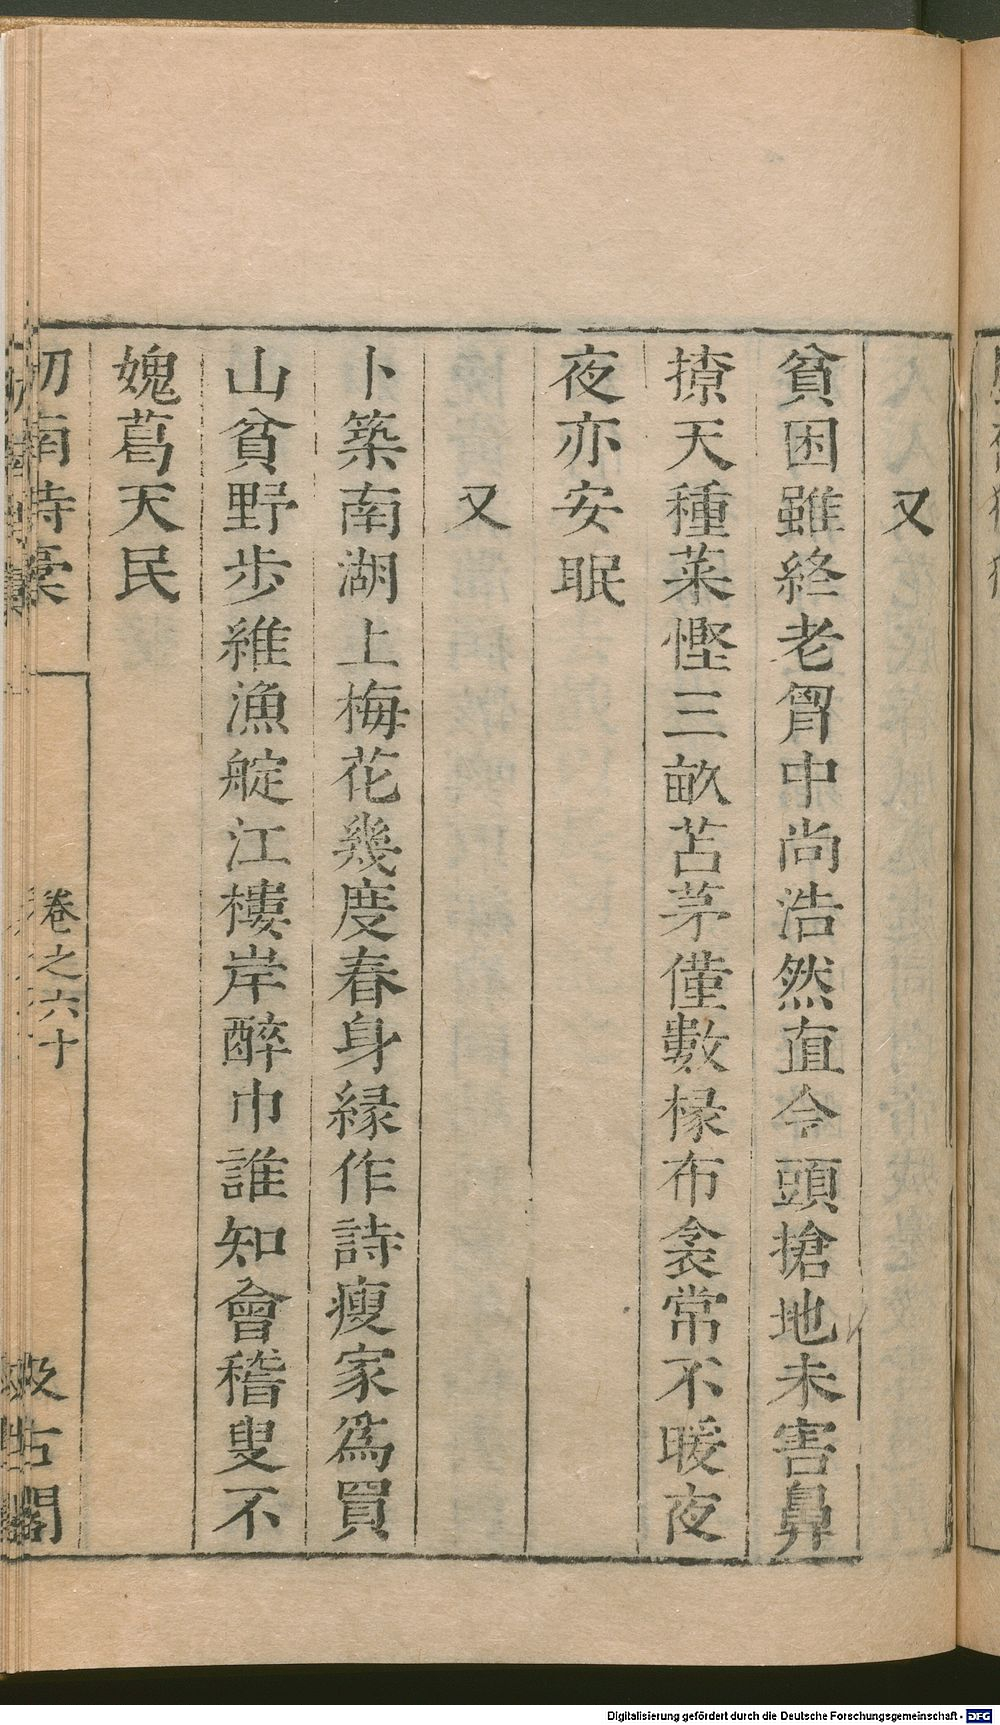 又
貧困雖終老胷中尚浩然直令頭搶地未害鼻
撩天種菜慳三畝苫茅僅數椽布衾常不暖夜
夜亦安眠
又
卜築南湖上梅花幾度春身緣作詩瘦家爲買
山貧野步維漁艇江樓岸醉巾誰知會稽叟不
媿葛天民
劒南詩稾
卷之六十
汲古閣
Digitalisierung gefördert durch die Deutsche Forschungsgemeinschaft - DFG